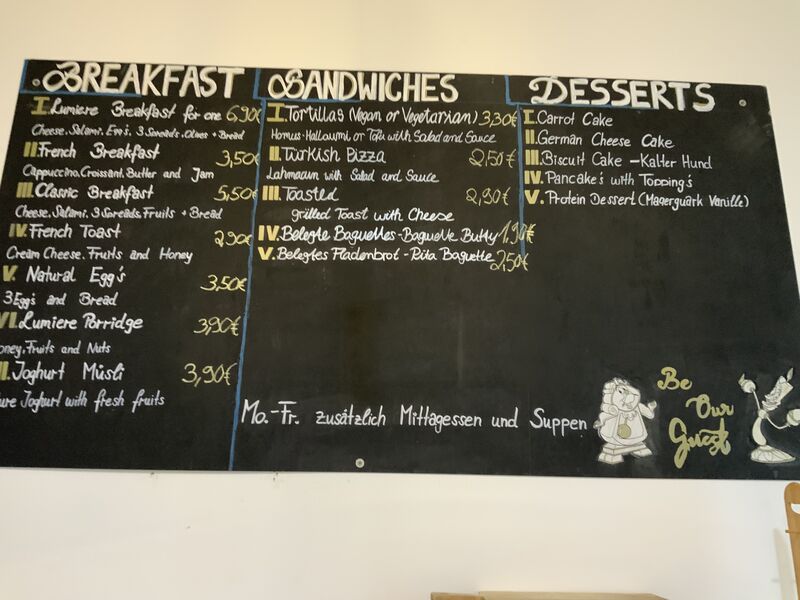 BREAKFAST
I. Lumiere Breakfast for one 6,90€
Cheese, Salami, Egg's, 3 Spreads, Olives + Bread
II. French Breakfast 3,50€
Cappuccino, Croissant, Butter and Jam
III. Classic Breakfast 5,50€
Cheese, Salami, 3 Spreads, Fruits + Bread
IV. French Toast 2,90€
Cream Cheese, Fruits and Honey
V. Natural Egg's 3,50€
3 Egg's and Bread
VI. Lumiere Porridge 3,90€
oney, Fruits and Nuts
II. Joghurt Müsli 3,90€
ure Joghurt with fresh fruits
SANDWICHES
I. Tortillas (Vegan or Vegetarian) 3,30€
Homus-Halloumi or Tofu with Salad and Sauce
II. Turkish Pizza 2,50€
Lahmacun with Salad and Sauce
III. Toasted 2,90€
grilled Toast with Cheese
IV. Belegte Baguettes - Baguette Butty 1,90€
V. Belegtes Fladenbrot - Pita Baguette 2,50€
DESSERTS
I. Carrot Cake
II. German Cheese Cake
III. Biscuit Cake - Kalter Hund
IV. Pancake's with Topping's
V. Protein Dessert (Magerquark Vanille)
Mo.-Fr. zusätzlich Mittagessen und Suppen
Be
Our
Guest